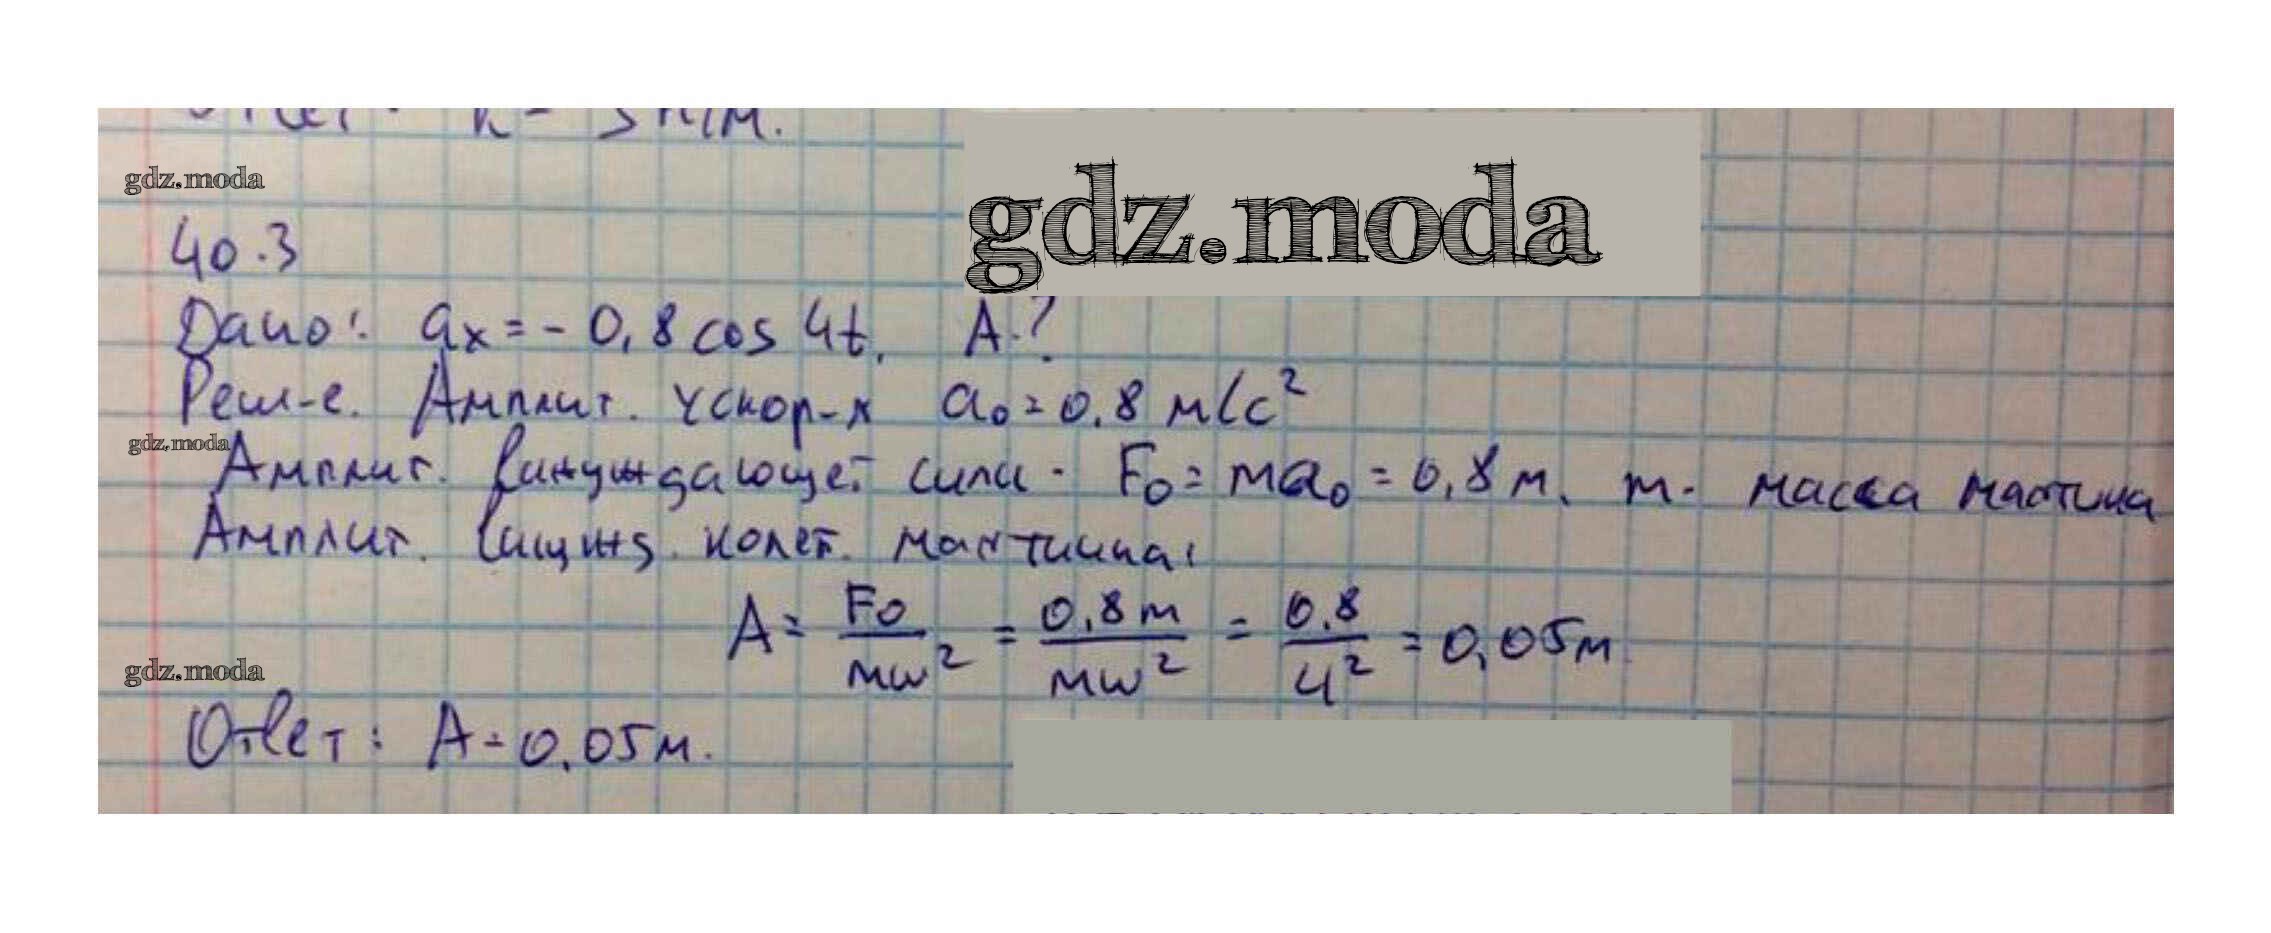 Ответ: k = 5 н/м.
gdz.moda
gdz.moda
40.3
Дано: aₓ = - 0,8 cos 4t, A-?
Реш-е. Амплит. ускор-я a₀ = 0,8 м/с²
gdz.moda
Амплит. вынуждающей силы - F₀ = ma₀ = 0,8 m. m - масса маятника
Амплит. вынужд. колеб. маятника:
A = F₀/mω² = 0,8m/mω² = 0,8/4² = 0,05м
gdz.moda
Ответ: A = 0,05м.